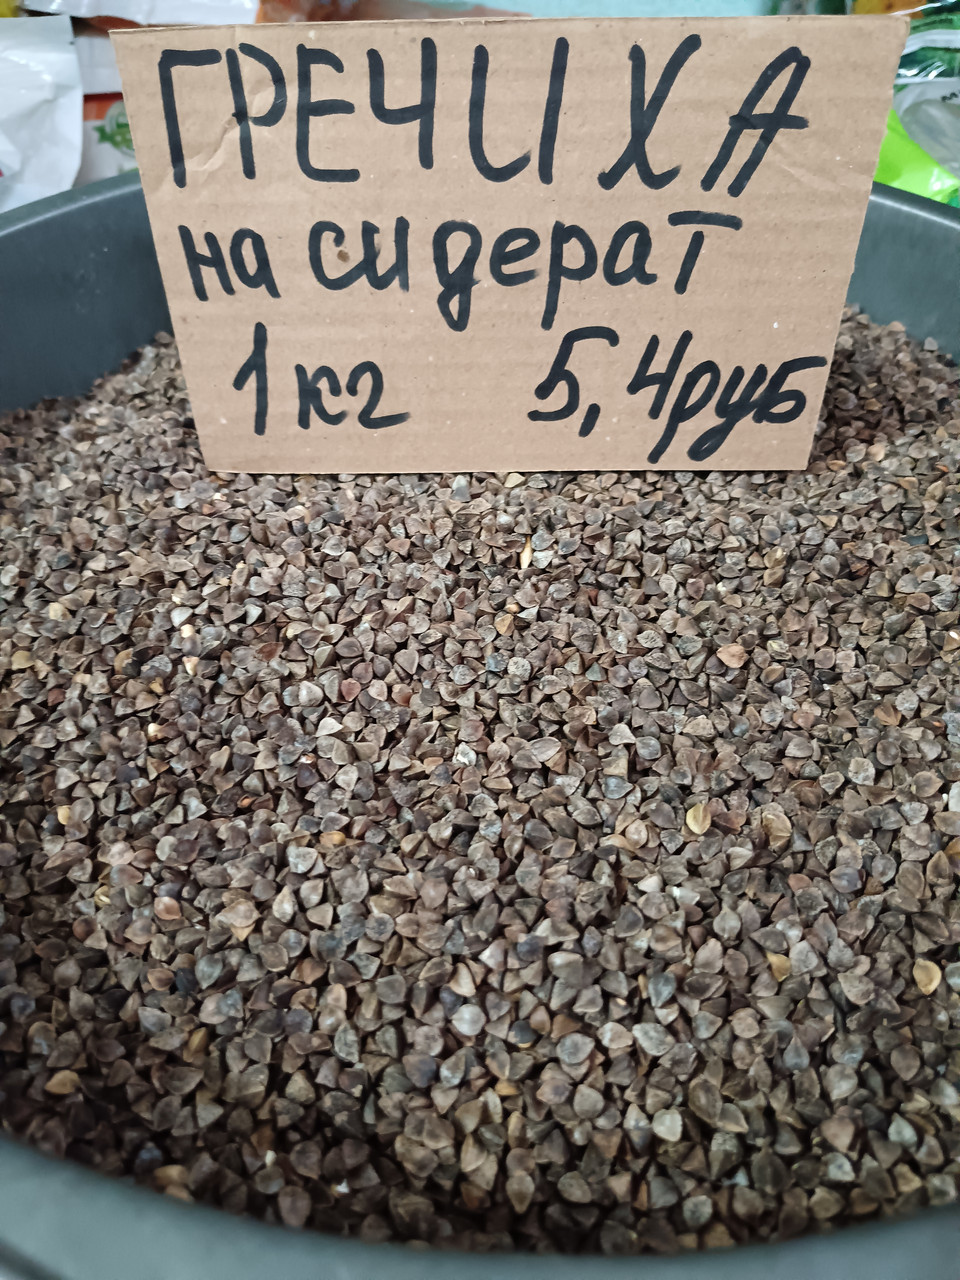 ГРЕЧИХА
на сидерат
1кг 5,4руб